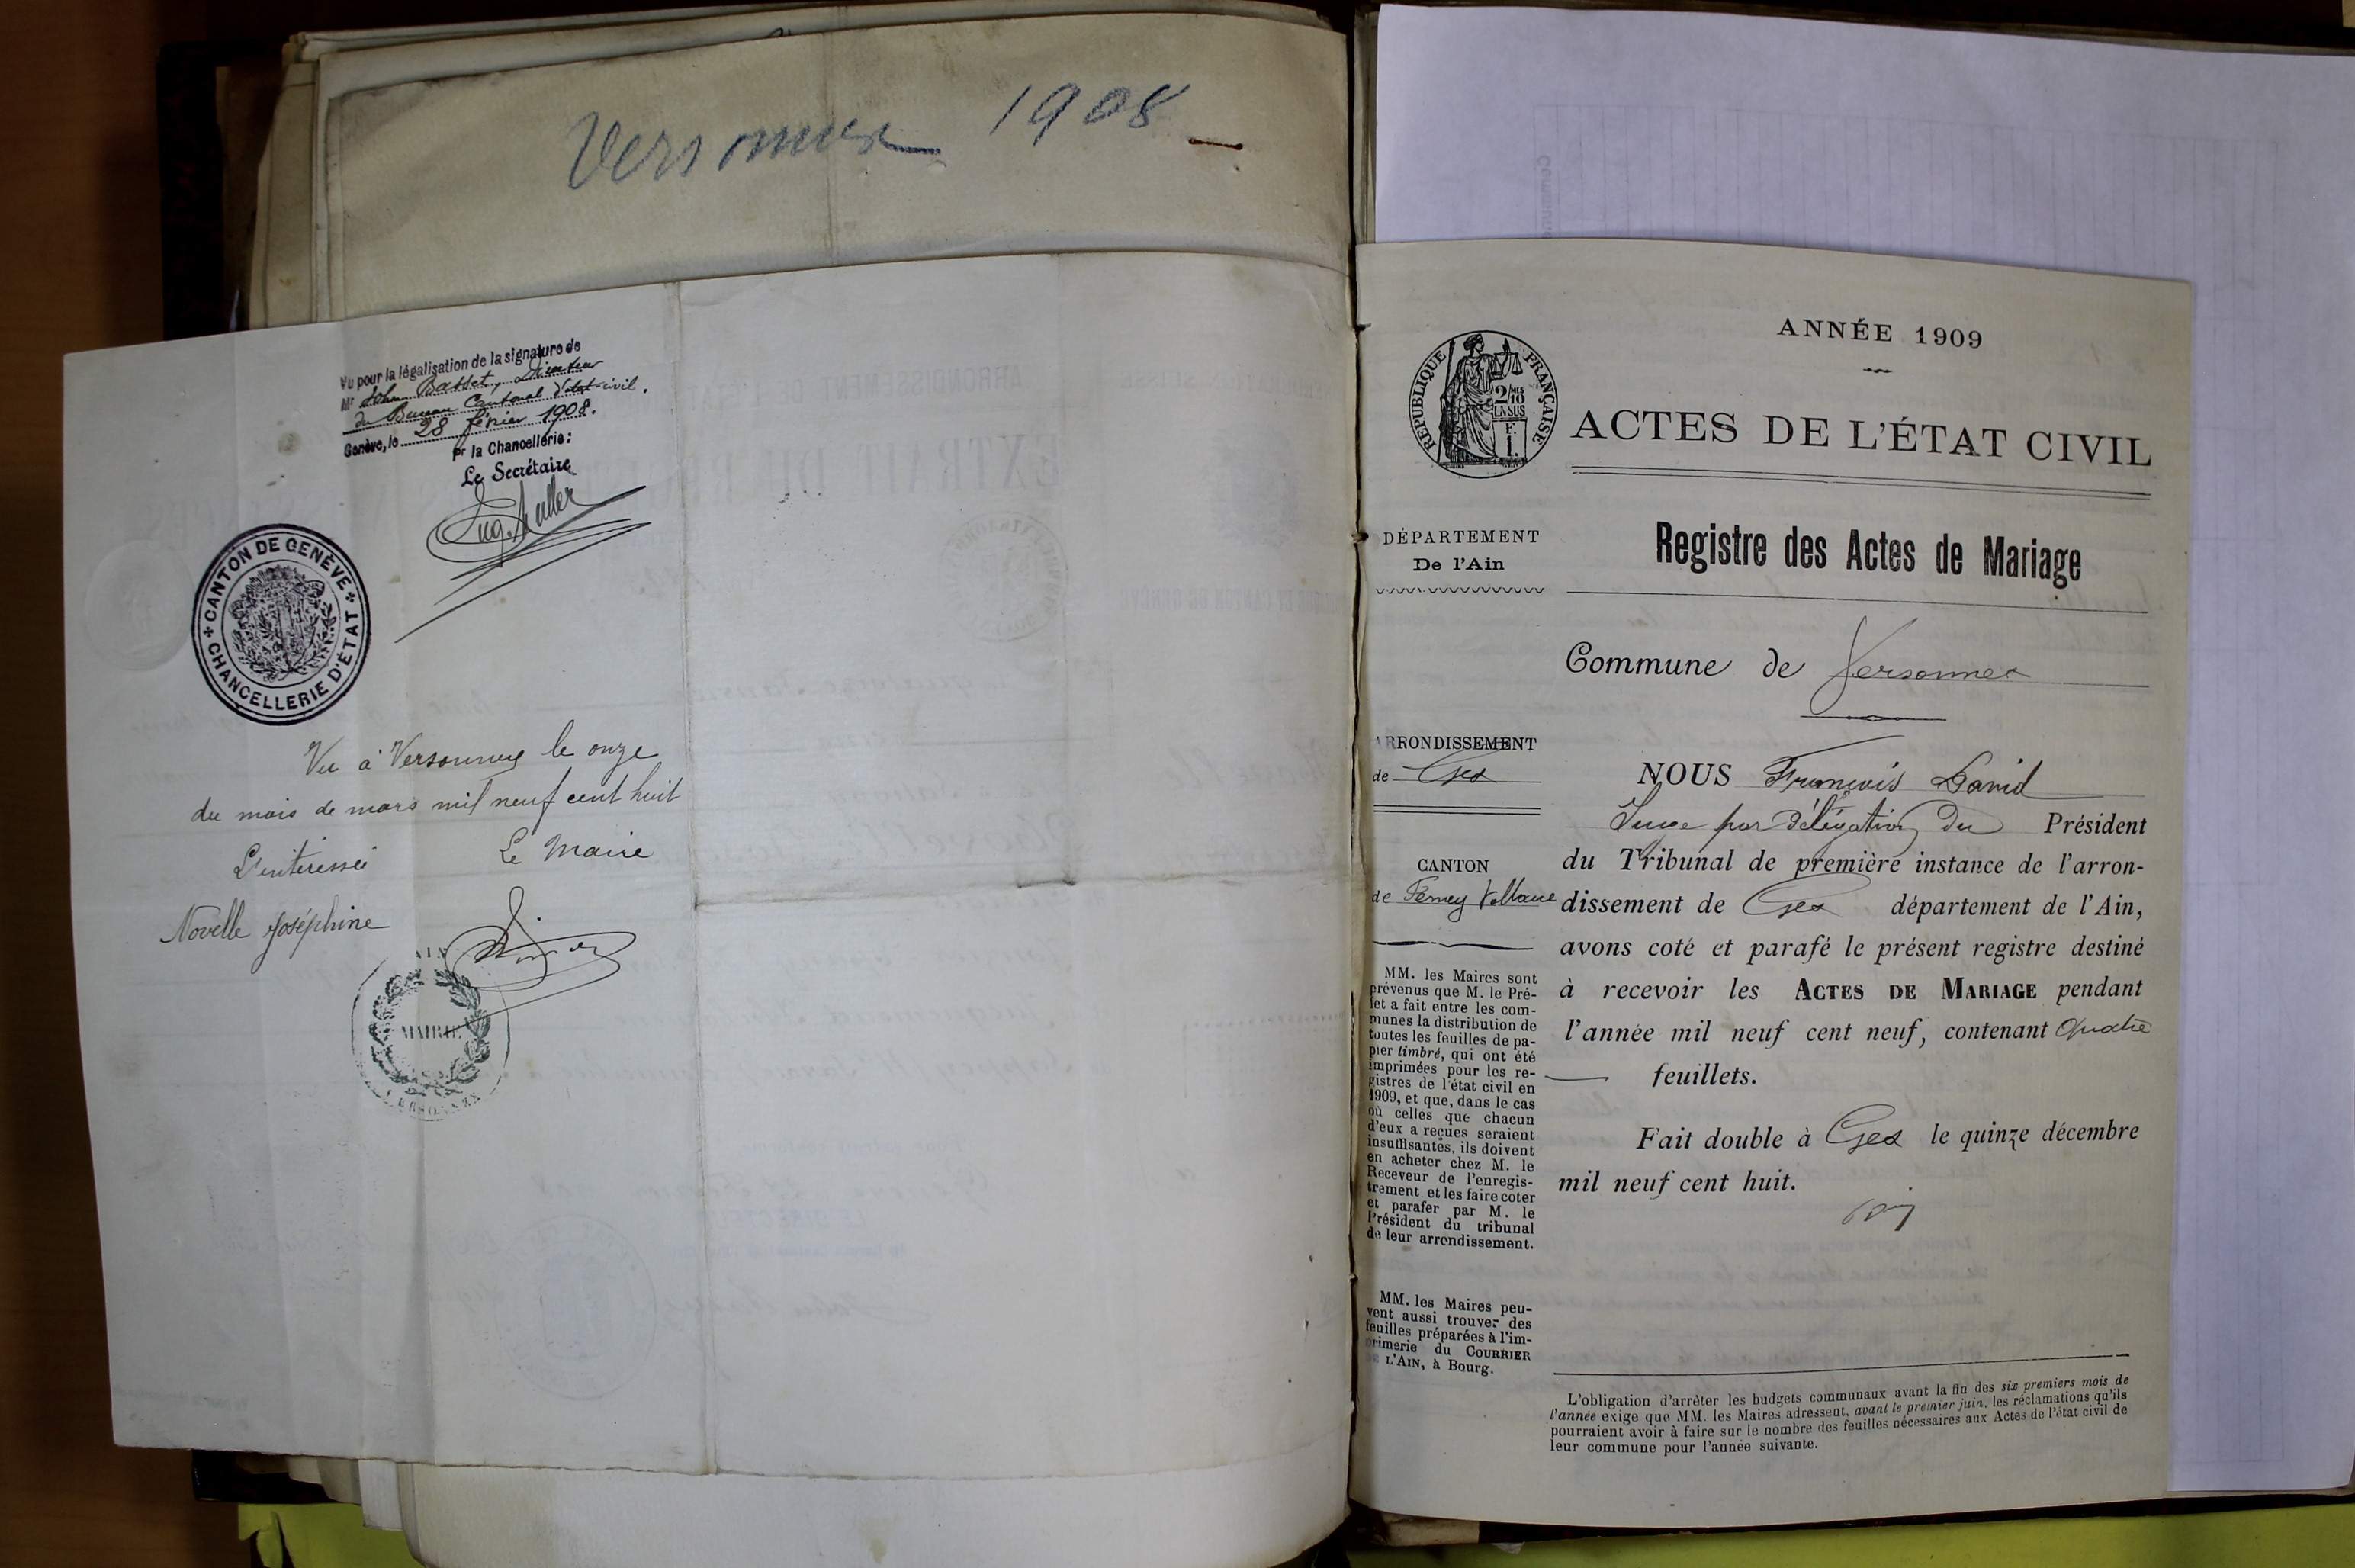 Versonnex 1908
Vu pour la légalisation de la signature de
Mr John Basset, Directeur
du Bureau Cantonal d'état-civil.
Genève, le 28 février 1908.
pr la Chancellerie:
Le Secrétaire
CANTON DE GENÈVE
CHANCELLERIE D'ÉTAT
Vu à Versonnex le onze
du mois de mars mil neuf cent huit
L'intéressée
Le Maire
Novelle Joséphine
AIN
MAIRIE
VERSONNEX
ANNÉE 1909
RÉPUBLIQUE FRANÇAISE
2/10 EN SUS
F. 1.
ACTES DE L'ÉTAT CIVIL
DÉPARTEMENT
De l'Ain
Registre des Actes de Mariage
Commune de Versonnex
ARRONDISSEMENT
de Gex
CANTON
de Ferney Voltaire
MM. les Maires sont
prévenus que M. le Pré-
fet a fait entre les com-
munes la distribution de
toutes les feuilles de pa-
pier timbré, qui ont été
imprimées pour les re-
gistres de l'état civil en
1909, et que, dans le cas
où celles que chacun
d'eux a reçues seraient
insuffisantes, ils doivent
en acheter chez M. le
Receveur de l'enregis-
trement et les faire coter
et parafer par M. le
Président du tribunal
de leur arrondissement.
MM. les Maires peu-
vent aussi trouver des
feuilles préparées à l'im-
primerie du COURRIER
DE L'AIN, à Bourg.
NOUS François David
Juge par délégation du Président
du Tribunal de première instance de l'arron-
dissement de Gex département de l'Ain,
avons coté et parafé le présent registre destiné
à recevoir les ACTES DE MARIAGE pendant
l'année mil neuf cent neuf, contenant quatre
feuillets.
Fait double à Gex le quinze décembre
mil neuf cent huit.
L'obligation d'arrêter les budgets communaux avant la fin des six premiers mois de
l'année exige que MM. les Maires adressent, avant le premier juin, les réclamations qu'ils
pourraient avoir à faire sur le nombre des feuilles nécessaires aux Actes de l'état civil de
leur commune pour l'année suivante.